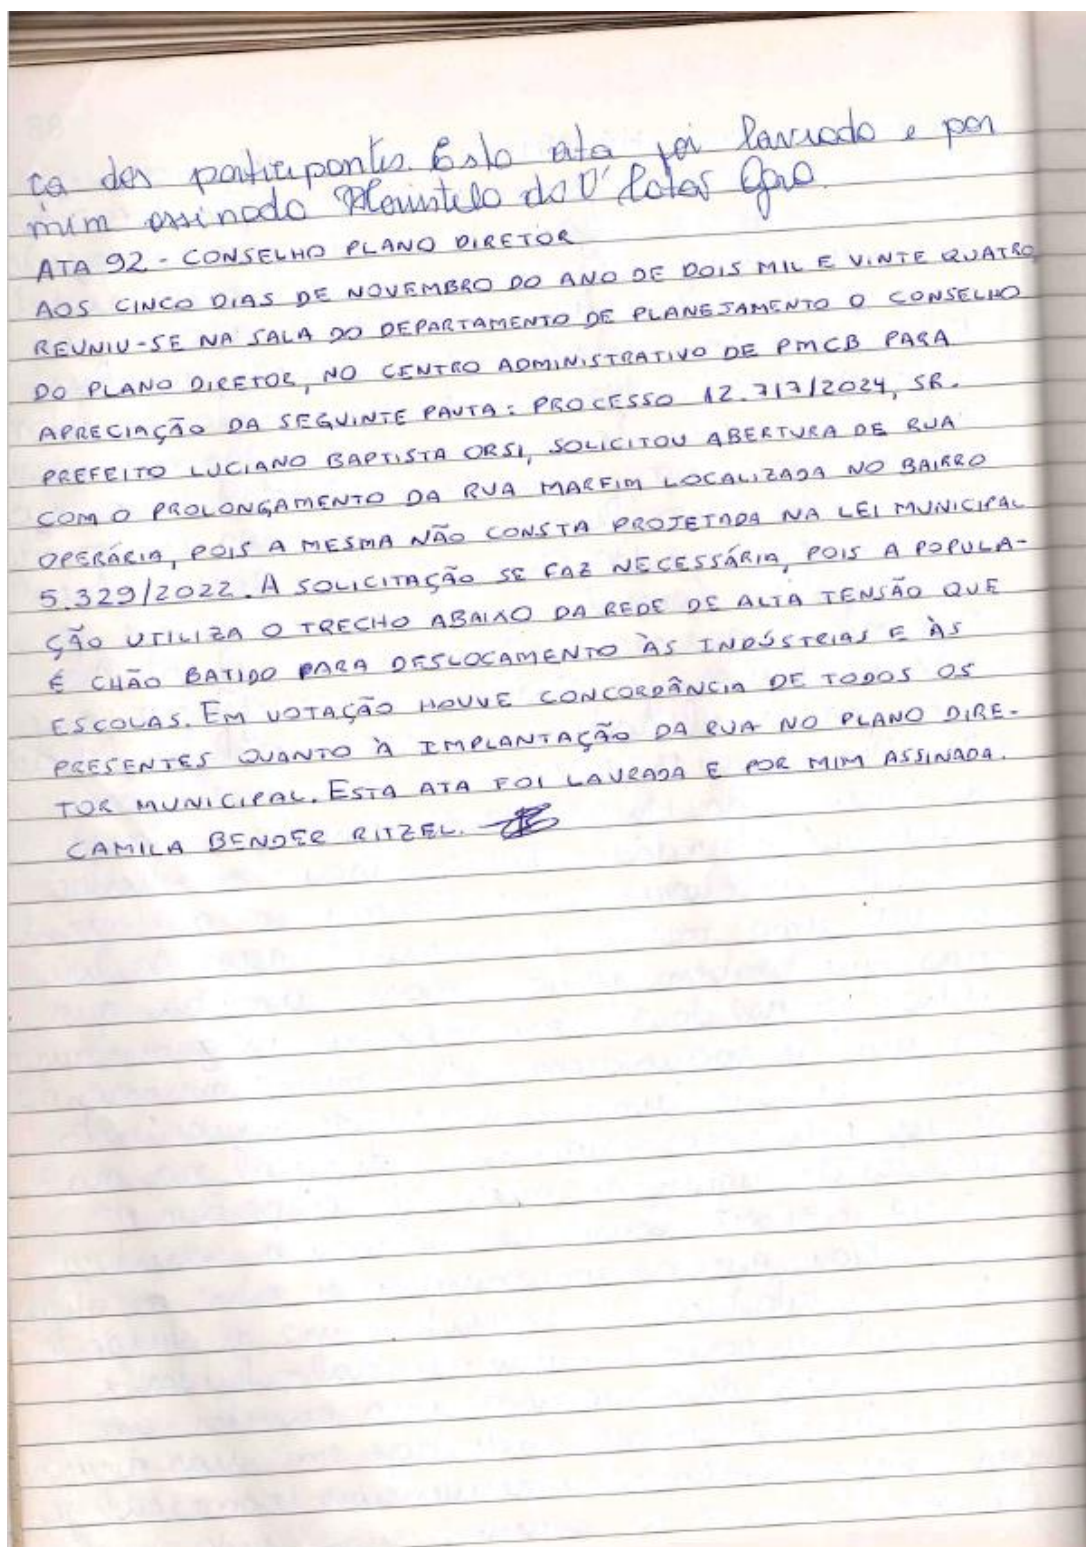 ça dos participantes. Esta ata foi lavrada e por
mim assinada
ATA 92 - CONSELHO PLANO DIRETOR
AOS CINCO DIAS DE NOVEMBRO DO ANO DE DOIS MIL E VINTE QUATRO
REUNIU-SE NA SALA DO DEPARTAMENTO DE PLANEJAMENTO O CONSELHO
DO PLANO DIRETOR, NO CENTRO ADMINISTRATIVO DE PMCB PARA
APRECIAÇÃO DA SEGUINTE PAUTA: PROCESSO 12.717/2024, SR.
PREFEITO LUCIANO BAPTISTA ORSI, SOLICITOU ABERTURA DE RUA
COM O PROLONGAMENTO DA RUA MARFIM LOCALIZADA NO BAIRRO
OPERÁRIA, POIS A MESMA NÃO CONSTA PROJETADA NA LEI MUNICIPAL
5.329/2022. A SOLICITAÇÃO SE FAZ NECESSÁRIA, POIS A POPULA-
ÇÃO UTILIZA O TRECHO ABAIXO DA REDE DE ALTA TENSÃO QUE
É CHÃO BATIDO PARA DESLOCAMENTO ÀS INDÚSTRIAS E ÀS
ESCOLAS. EM VOTAÇÃO HOUVE CONCORDÂNCIA DE TODOS OS
PRESENTES QUANTO À IMPLANTAÇÃO DA RUA NO PLANO DIRE-
TOR MUNICIPAL. ESTA ATA FOI LAVRADA E POR MIM ASSINADA.
CAMILA BENDER RITZEL.